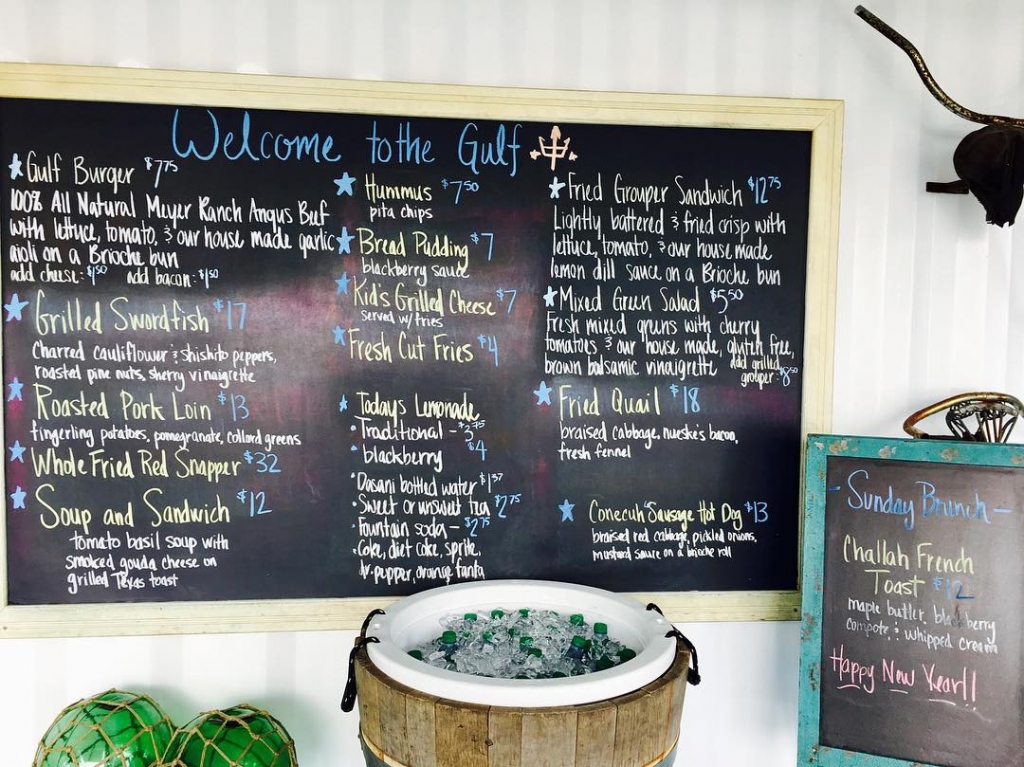 Welcome to the Gulf
Gulf Burger $7.75
100% All Natural Meyer Ranch Angus Beef
with lettuce, tomato, & our house made garlic
aioli on a Brioche bun
add cheese: $1.50 add bacon: $1.50
Grilled Swordfish $17
Charred cauliflower & shishito peppers,
roasted pine nuts, sherry vinaigrette
Roasted Pork Loin $13
fingerling potatoes, pomegranate, collard greens
Whole Fried Red Snapper $32
Soup and Sandwich $12
tomato basil soup with
smoked gouda cheese on
grilled Texas toast
Hummus $7.50
pita chips
Bread Pudding $7
blackberry sauce
Kid's Grilled Cheese $7
served w/ fries
Fresh Cut Fries $4
Todays Lemonade
• Traditional - $3.75
• blackberry $4
• Dasani bottled water $1.37
• Sweet or unsweet tea $2.75
• Fountain soda - $2.75
• Coke, diet coke, sprite,
dr. pepper, orange fanta
Fried Grouper Sandwich $12.75
Lightly battered & fried crisp with
lettuce, tomato, & our house made
lemon dill sauce on a Brioche bun
Mixed Green Salad $5.50
Fresh mixed greens with cherry
tomatoes & our house made, gluten free,
brown balsamic vinaigrette add grilled
grouper: $8.50
Fried Quail $18
braised cabbage, nueske's bacon,
fresh fennel
Conecuh Sausage Hot Dog $13
braised red cabbage, pickled onions,
mustard sauce on a brioche roll
- Sunday Brunch -
Challah French
Toast $12
maple butter, blackberry
compote, & whipped cream
Happy New Year!!